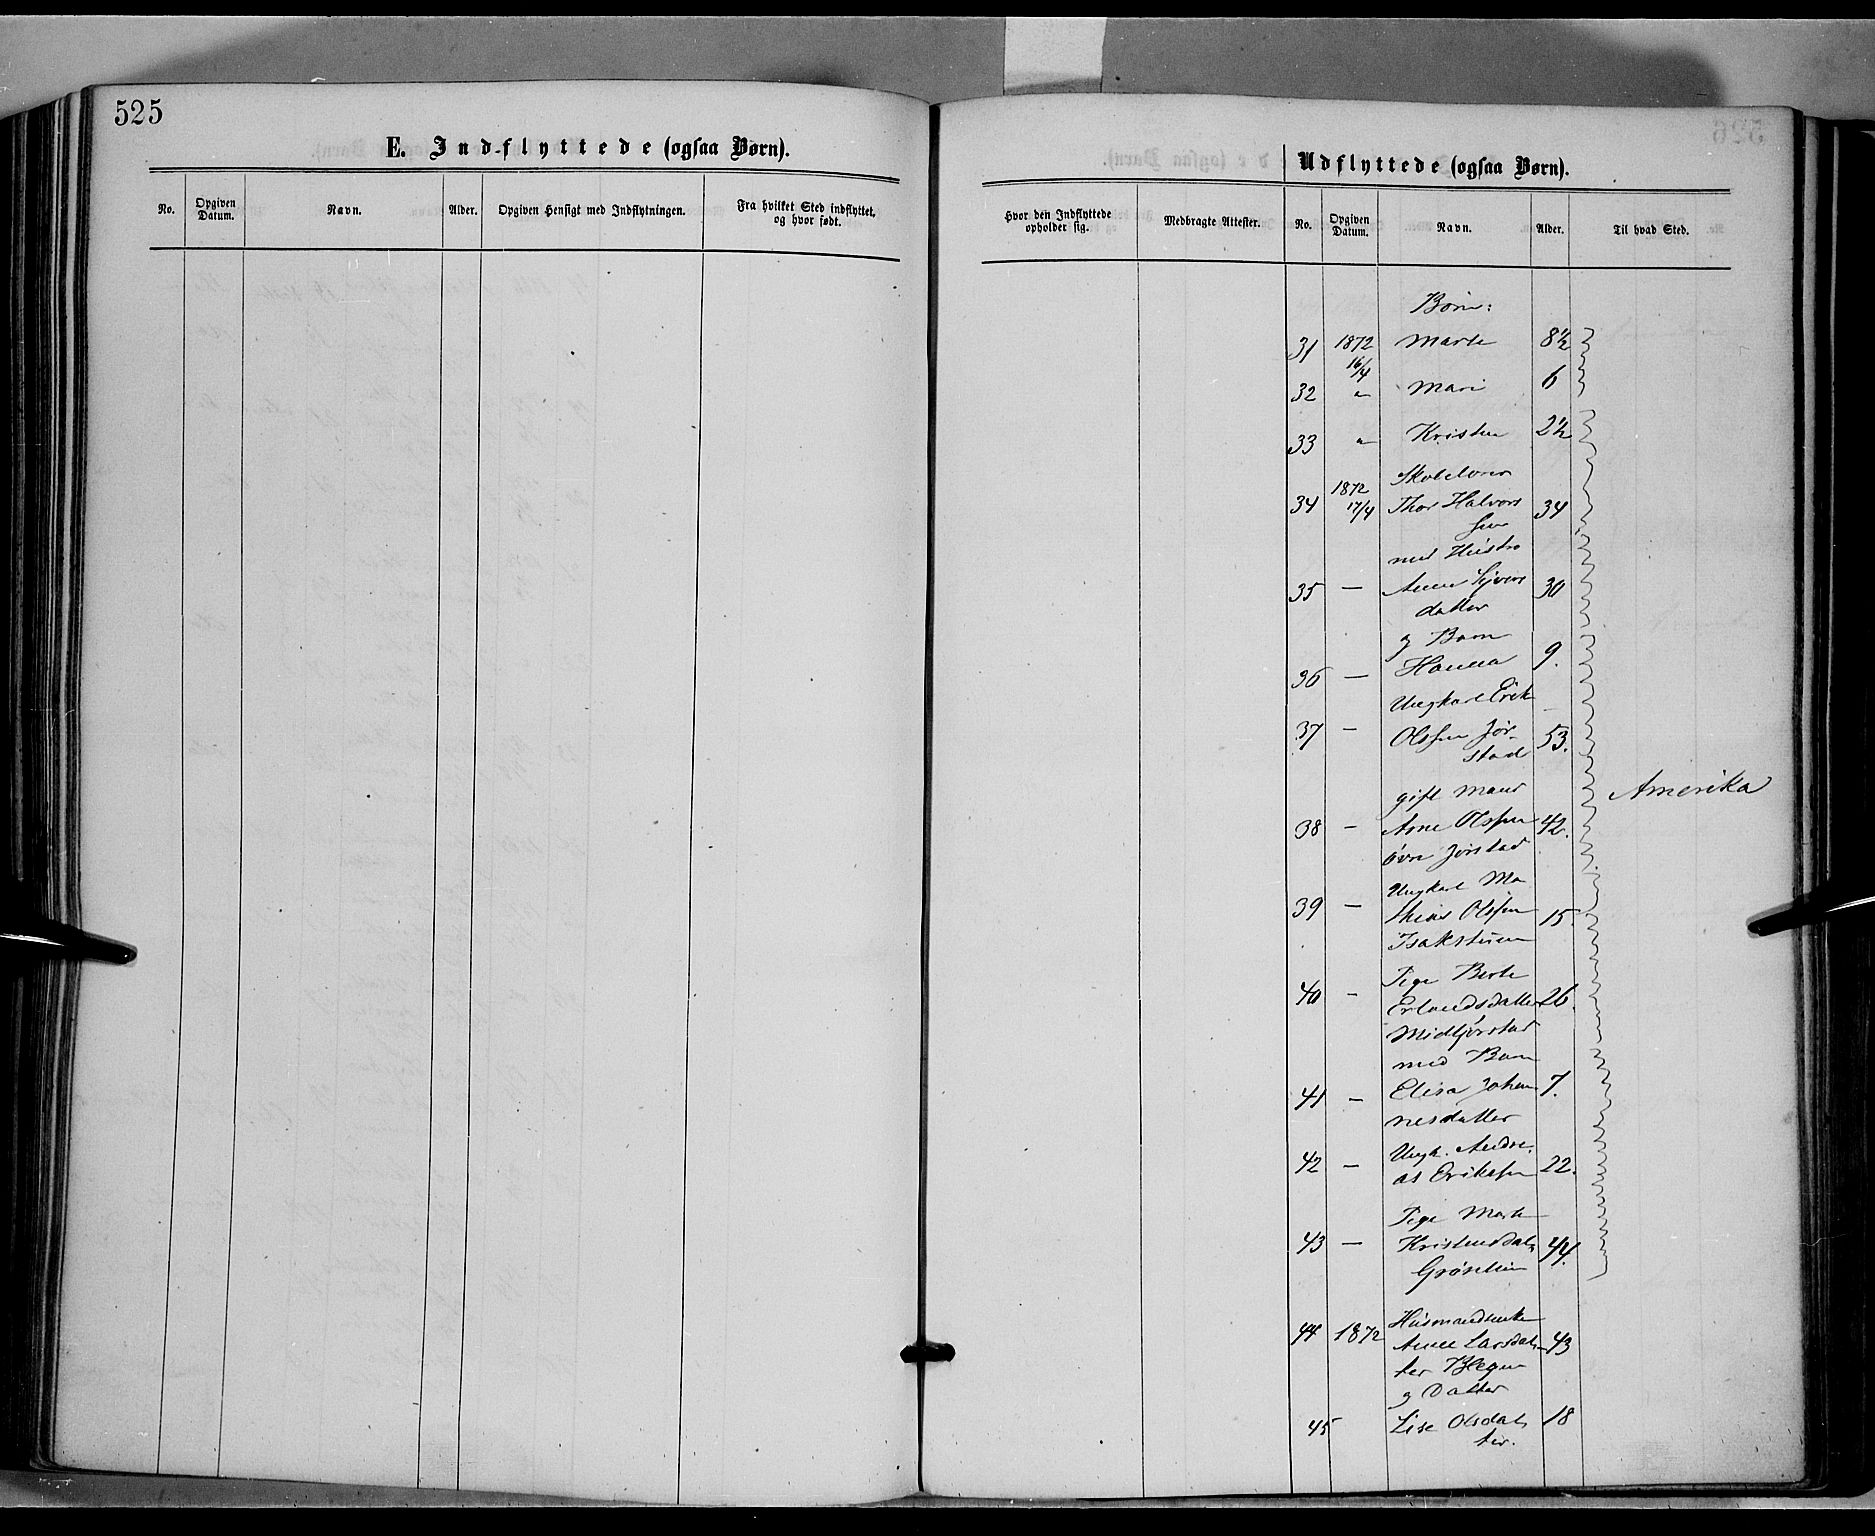 525
E. Indflyttede (ogsaa Børn).
No. Opgiven Datum. Navn. Alder. Opgiven Hensigt med Indflytningen. Fra hvilket Sted indflyttet, og hvor født.
Udflyttede (ogsaa Børn).
Hvor den Indflyttede opholder sig. Medbragte Attester. No. Opgiven Datum. Navn. Alder. Til hvad Sted.
Børn:
31 1872 16/4 Marte 8½
32 " Mari 6
33 " Kristen 2½
Skolelærer
34 1872 17/4 Thor Halvors 34
sen
med Hustru
35 — Anne Syvers 30
datter
og Barn
36 — Hanna 9.
Ungkarl Erik
37 — Olssen Jør- 53.
stad
gift Mand
38 — Arne Olssen 42.
øvre Jørstad
Amerika
Ungkarl Ma
39 — thias Olssen 15.
Isakstuen
Pige Berte
40 — Erlandsdatter 26.
Midtjørstad
med Barn
41 — Elisa Johan 7.
nesdatter
Ungk. Andre
42 — as Eriksen 22.
Pige Marte
43 — Kristensdat 44.
Husmandsenke
44 1872 Anne Larsdat 43
ter
og Datter
45 Lise Olsdat 18
ter.